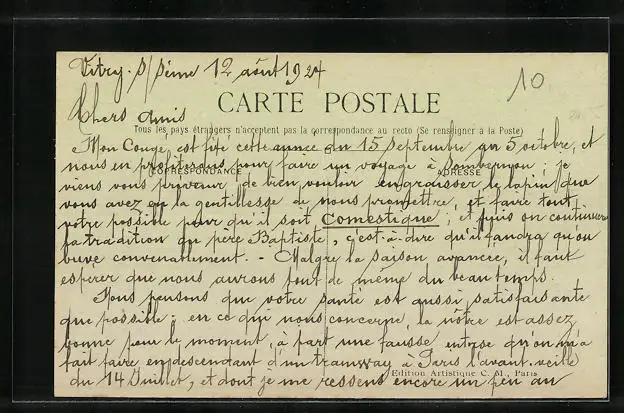 Vitry s/ Seine 12 août 1924
10
Chers Amis
CARTE POSTALE
Tous les pays étrangers n'acceptent pas la correspondance au recto (Se renseigner à la Poste)
Mon Congé est fixé cette année du 15 Septembre au 5 octobre, et
nous en profiterons pour faire un voyage à Sombernon : je
CORRESPONDANCE
ADRESSE
viens vous prévenir de bien vouloir engraisser le lapin que
vous avez eu la gentillesse de nous promettre, et faire tout
votre possible pour qu'il soit Comestique ; et puis on continuera
la tradition du père Baptiste, c'est-à-dire qu'il faudra qu'on
buve convenablement. - Malgré la saison avancée, il faut
espérer que nous aurons tout de même du beau temps.
Nous pensons que votre santé est aussi satisfaisante
que possible : en ce qui nous concerne, la nôtre est assez
bonne pour le moment, à part une fausse entorse qu'on m'a
fait faire en descendant d'un tramway à Paris l'avant-veille
Edition Artistique C. M., Paris
du 14 Juillet, et dont je me ressens encore un peu au